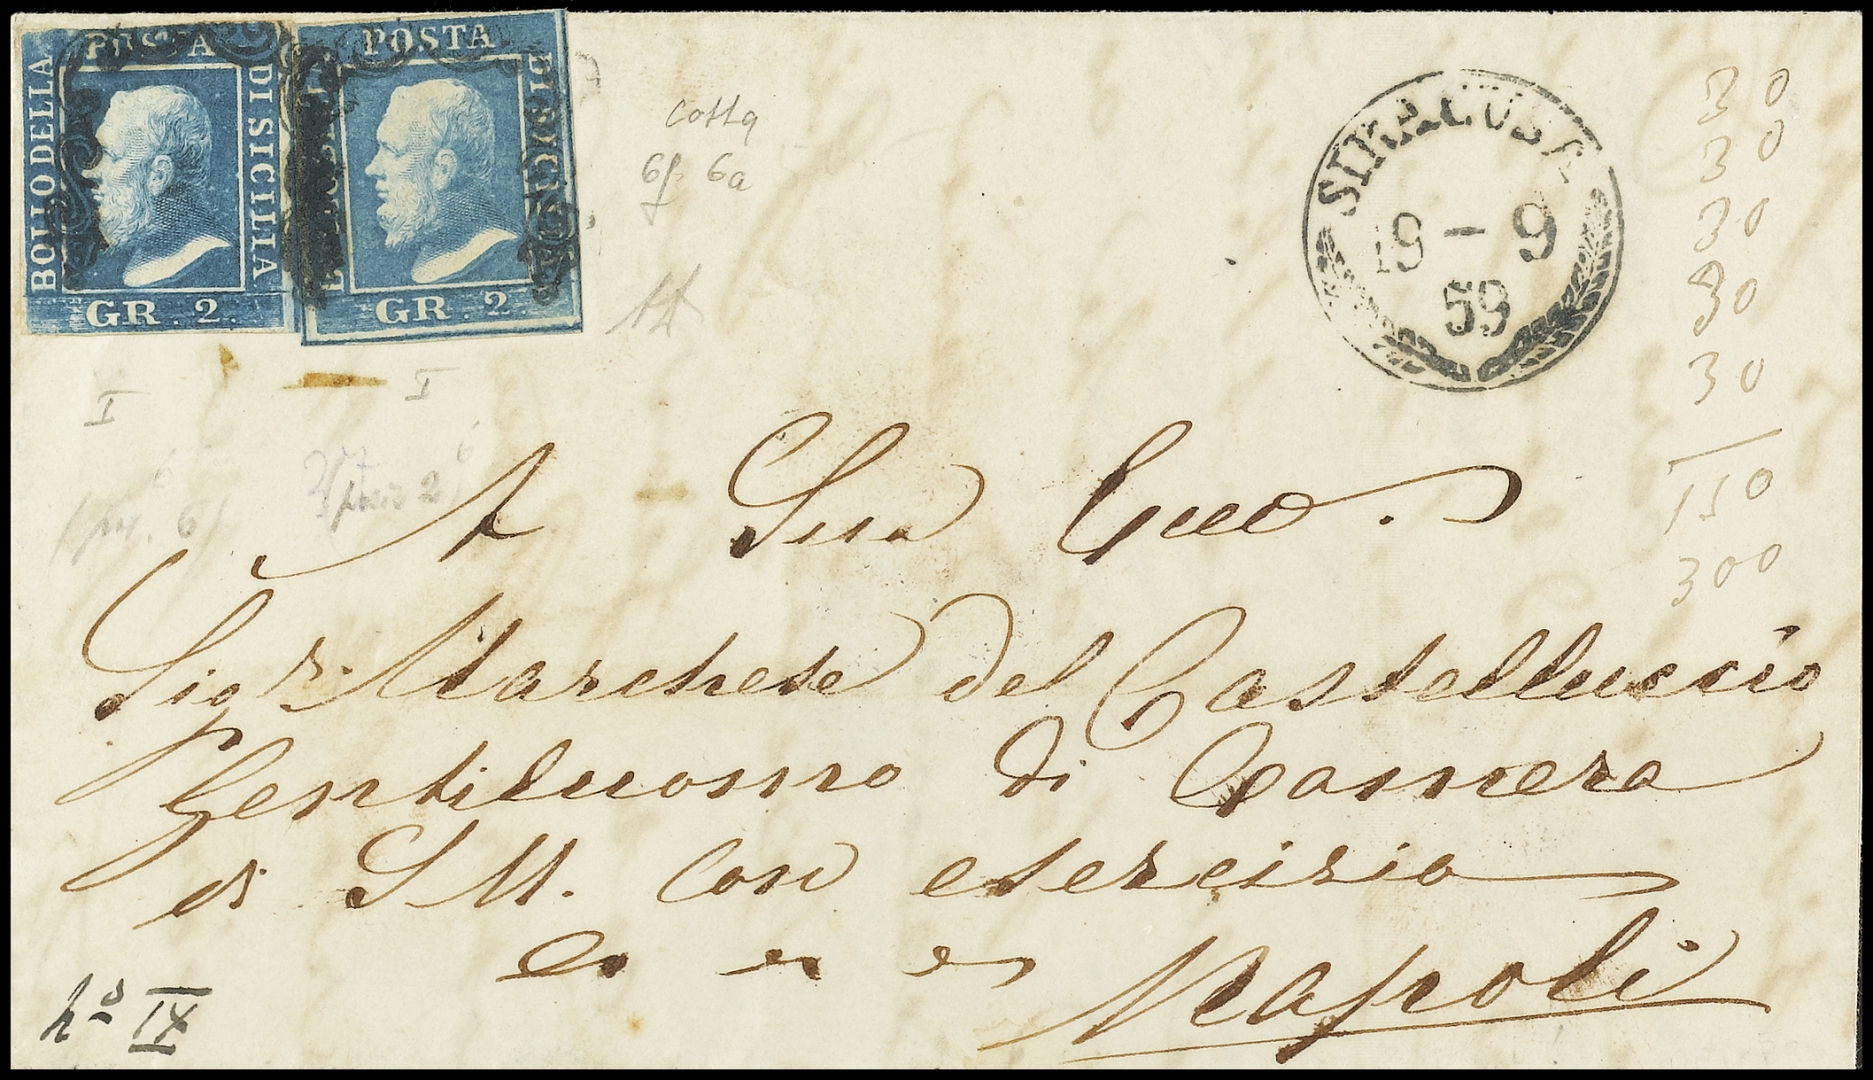 BOLLO DELLA POSTA DI SICILIA
GR. 2.
POSTA DI SICILIA
GR. 2.
SIRACUSA
19 - 9
59
cotta
6f 6a
30
30
30
30
30
150
300
I
I
A Sua Ecc.
Sigr. Marchese del Castelluccio
Gentiluomo di Camera
di S M. Con esercizio
Napoli
IX